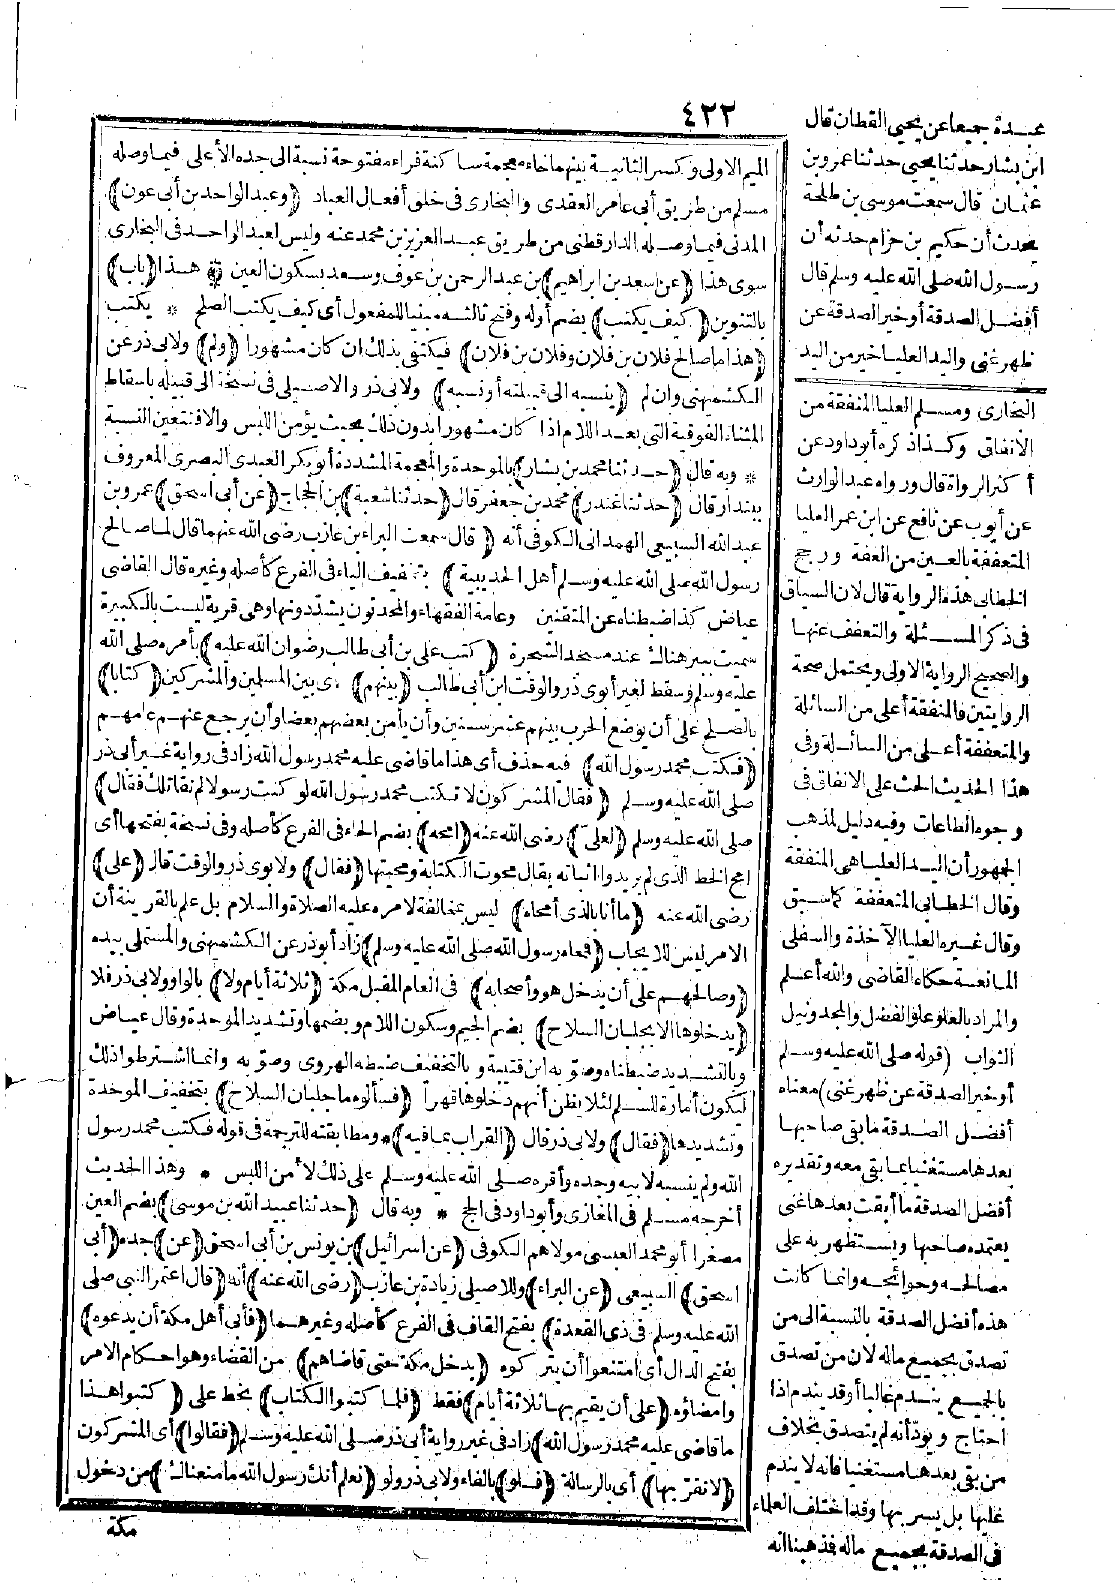 ٤٢٢
الميم الاولى وكسر الثانية بينهما خاء معجمة ساكنة فراء مفتوحة نسبة الى جده الأعلى فيما وصله
مسلم من طريق أبى عامر العقدى والبخارى فى خلق أفعال العباد (وعبد الواحد بن أبى عون)
المدنى فيما وصله الدارقطنى من طريق عبد العزيز بن محمد عنه وليس لعبد الواحد فى البخارى
سوى هذا (عن سعد بن ابراهيم) بن عبد الرحمن بن عوف وسعد بسكون العين * هذا (باب)
بالتنوين (كيف يكتب) بضم أوله وفتح ثالثه مبنيا للمفعول أى كيف يكتب الصلح * يكتب
(هذا ما صالح فلان بن فلان وفلان بن فلان) فيكتفى بذلك ان كان مشهورا (ولم) ولابى ذر عن
الكشميهنى وان لم (ينسبه الى قبيلته أو نسبه) ولابى ذر والاصيلى فى نسخة الى قبيله باسقاط
المثناة الفوقية التى بعد اللام اذا كان مشهورا بدون ذلك بحيث يؤمن اللبس والافتتعين النسبة
* وبه قال (حدثنا محمد بن بشار) بالموحدة والمعجمة المشددة أبو بكر العبدى البصرى المعروف
ببندار قال (حدثنا غندر) محمد بن جعفر قال (حدثنا شعبة) بن الحجاج (عن أبى اسحق) عمرو بن
عبد الله السبيعى الهمدانى الكوفى أنه (قال سمعت البراء بن عازب رضى الله عنهما قال لما صالح
رسول الله صلى الله عليه وسلم أهل الحديبية) بتخفيف الياء فى الفرع كأصله وغيره قال القاضى
عياض كذا ضبطناه عن المتقنين وعامة الفقهاء والمحدثون يشددونها وهى قرية ليست بالكبيرة
سميت ببئر هناك عند مسجد الشجرة (كتب على بن أبى طالب رضوان الله عليه) بأمره صلى الله
عليه وسلم وسقط لغير أبوى ذر والوقت ابن أبى طالب (بينهم) أى بين المسلمين والمشركين (كتابا)
بالصلح على أن يوضع الحرب بينهم عشر سنين وأن يأمن بعضهم بعضا وأن يرجع عنهم عامهم
(فكتب محمد رسول الله) فيه حذف أى هذا ما قاضى عليه محمد رسول الله زاد فى رواية غير أبى ذر
صلى الله عليه وسلم (فقال المشركون لا تكتب محمد رسول الله لو كنت رسولا لم نقاتلك فقال)
صلى الله عليه وسلم (لعلى) رضى الله عنه (امحه) بضم الحاء فى الفرع كأصله وفى نسخة بفتحها أى
امح الخط الذى لم يريدوا اثباته يقال محوت الكتابة ومحيتها (فقال) ولابوى ذر والوقت قال (على)
رضى الله عنه (ما أنا بالذى أمحاه) ليس بمخالفة لامره عليه الصلاة والسلام بل علم بالقرينة أن
الامر ليس للايجاب (فمحاه رسول الله صلى الله عليه وسلم) زاد أبو ذر عن الكشميهنى والمستملى بيده
(وصالحهم على أن يدخل هو وأصحابه) فى العام المقبل مكة (ثلاثة أيام ولا) بالواو ولابى ذر فلا
(يدخلوها الا بجلبان السلاح) بضم الجيم وسكون اللام وبضمها وتشديد الموحدة وقال عياض
وبالتشديد ضبطناه وصوّبه ابن قتيبة وبالتخفيف ضبطه الهروى وصوّبه وانما اشترطوا ذلك
ليكون أمارة للسلم لئلا يظن أنهم دخلوها قهرا (فسألوه ما جلبان السلاح) بتخفيف الموحدة
وتشديدها (فقال) ولابى ذر قال (القراب بما فيه) * ومطابقته للترجمة فى قوله فكتب محمد رسول
الله ولم ينسبه لابيه وجده وأقره صلى الله عليه وسلم على ذلك لأمن اللبس * وهذا الحديث
أخرجه مسلم فى المغازى وأبو داود فى الحج * وبه قال (حدثنا عبيد الله بن موسى) بضم العين
مصغرا أبو محمد العبسى مولاهم الكوفى (عن اسرائيل) بن يونس بن أبى اسحق (عن) جده (أبى
اسحق) السبيعى (عن البراء) وللاصيلى زيادة بن عازب (رضى الله عنه) أنه (قال اعتمر النبى صلى
الله عليه وسلم فى ذى القعدة) بفتح القاف فى الفرع كأصله وغيرهما (فأبى أهل مكة أن يدعوه)
بفتح الدال أى امتنعوا أن يتركوه (يدخل مكة حتى قاضاهم) من القضاء وهو احكام الامر
وامضاؤه (على أن يقيم بها ثلاثة أيام) فقط (فلما كتبوا الكتاب) بخط على (كتبوا هذا
ما قاضى عليه محمد رسول الله) زاد فى غير رواية أبى ذر صلى الله عليه وسلم (فقالوا) أى المشركون
(لا نقر بها) أى بالرسالة (فلو) بالفاء ولابى ذر ولو (نعلم أنك رسول الله ما منعناك) من دخول
مكة
عبدة جميعا عن يحيى القطان قال
ابن بشار حدثنا يحيى حدثنا عمرو بن
عثمان قال سمعت موسى بن طلحة
يحدث أن حكيم بن حزام حدثه أن
رسول الله صلى الله عليه وسلم قال
أفضل الصدقة أو خير الصدقة عن
ظهر غنى واليد العليا خير من اليد
البخارى ومسلم العليا المنفقة من
الانفاق وكذا ذكره أبو داود عن
أكثر الرواة قال ورواه عبد الوارث
عن أيوب عن نافع عن ابن عمر العليا
المتعففة بالعين من العفة ورجح
الخطابى هذه الرواية قال لان السياق
فى ذكر المسئلة والتعفف عنها
والصحيح الرواية الاولى ويحتمل صحة
الروايتين فالمنفقة أعلى من السائلة
والمتعففة أعلى من السائلة وفى
هذا الحديث الحث على الانفاق فى
وجوه الطاعات وفيه دليل لمذهب
الجمهور أن اليد العليا هى المنفقة
وقال الخطابى المتعففة كما سبق
وقال غيره العليا الآخذة والسفلى
المانعة حكاه القاضى والله أعلم
والمراد بالعلو علو الفضل والمجد ونيل
الثواب (قوله صلى الله عليه وسلم
أو خير الصدقة عن ظهر غنى) معناه
أفضل الصدقة ما بقى صاحبها
بعدها مستغنيا بما بقى معه وتقديره
أفضل الصدقة ما أبقت بعدها غنى
يعتمده صاحبها ويستظهر به على
مصالحه وحوائجه وانما كانت
هذه أفضل الصدقة بالنسبة الى من
تصدق بجميع ماله لان من تصدق
بالجميع يندم غالبا أو قد يندم اذا
احتاج ويودّ أنه لم يتصدق بخلاف
من بقى بعدها مستغنيا فانه لا يندم
عليها بل يسر بها وقد اختلف العلماء
فى الصدقة بجميع ماله فذهبنا انه